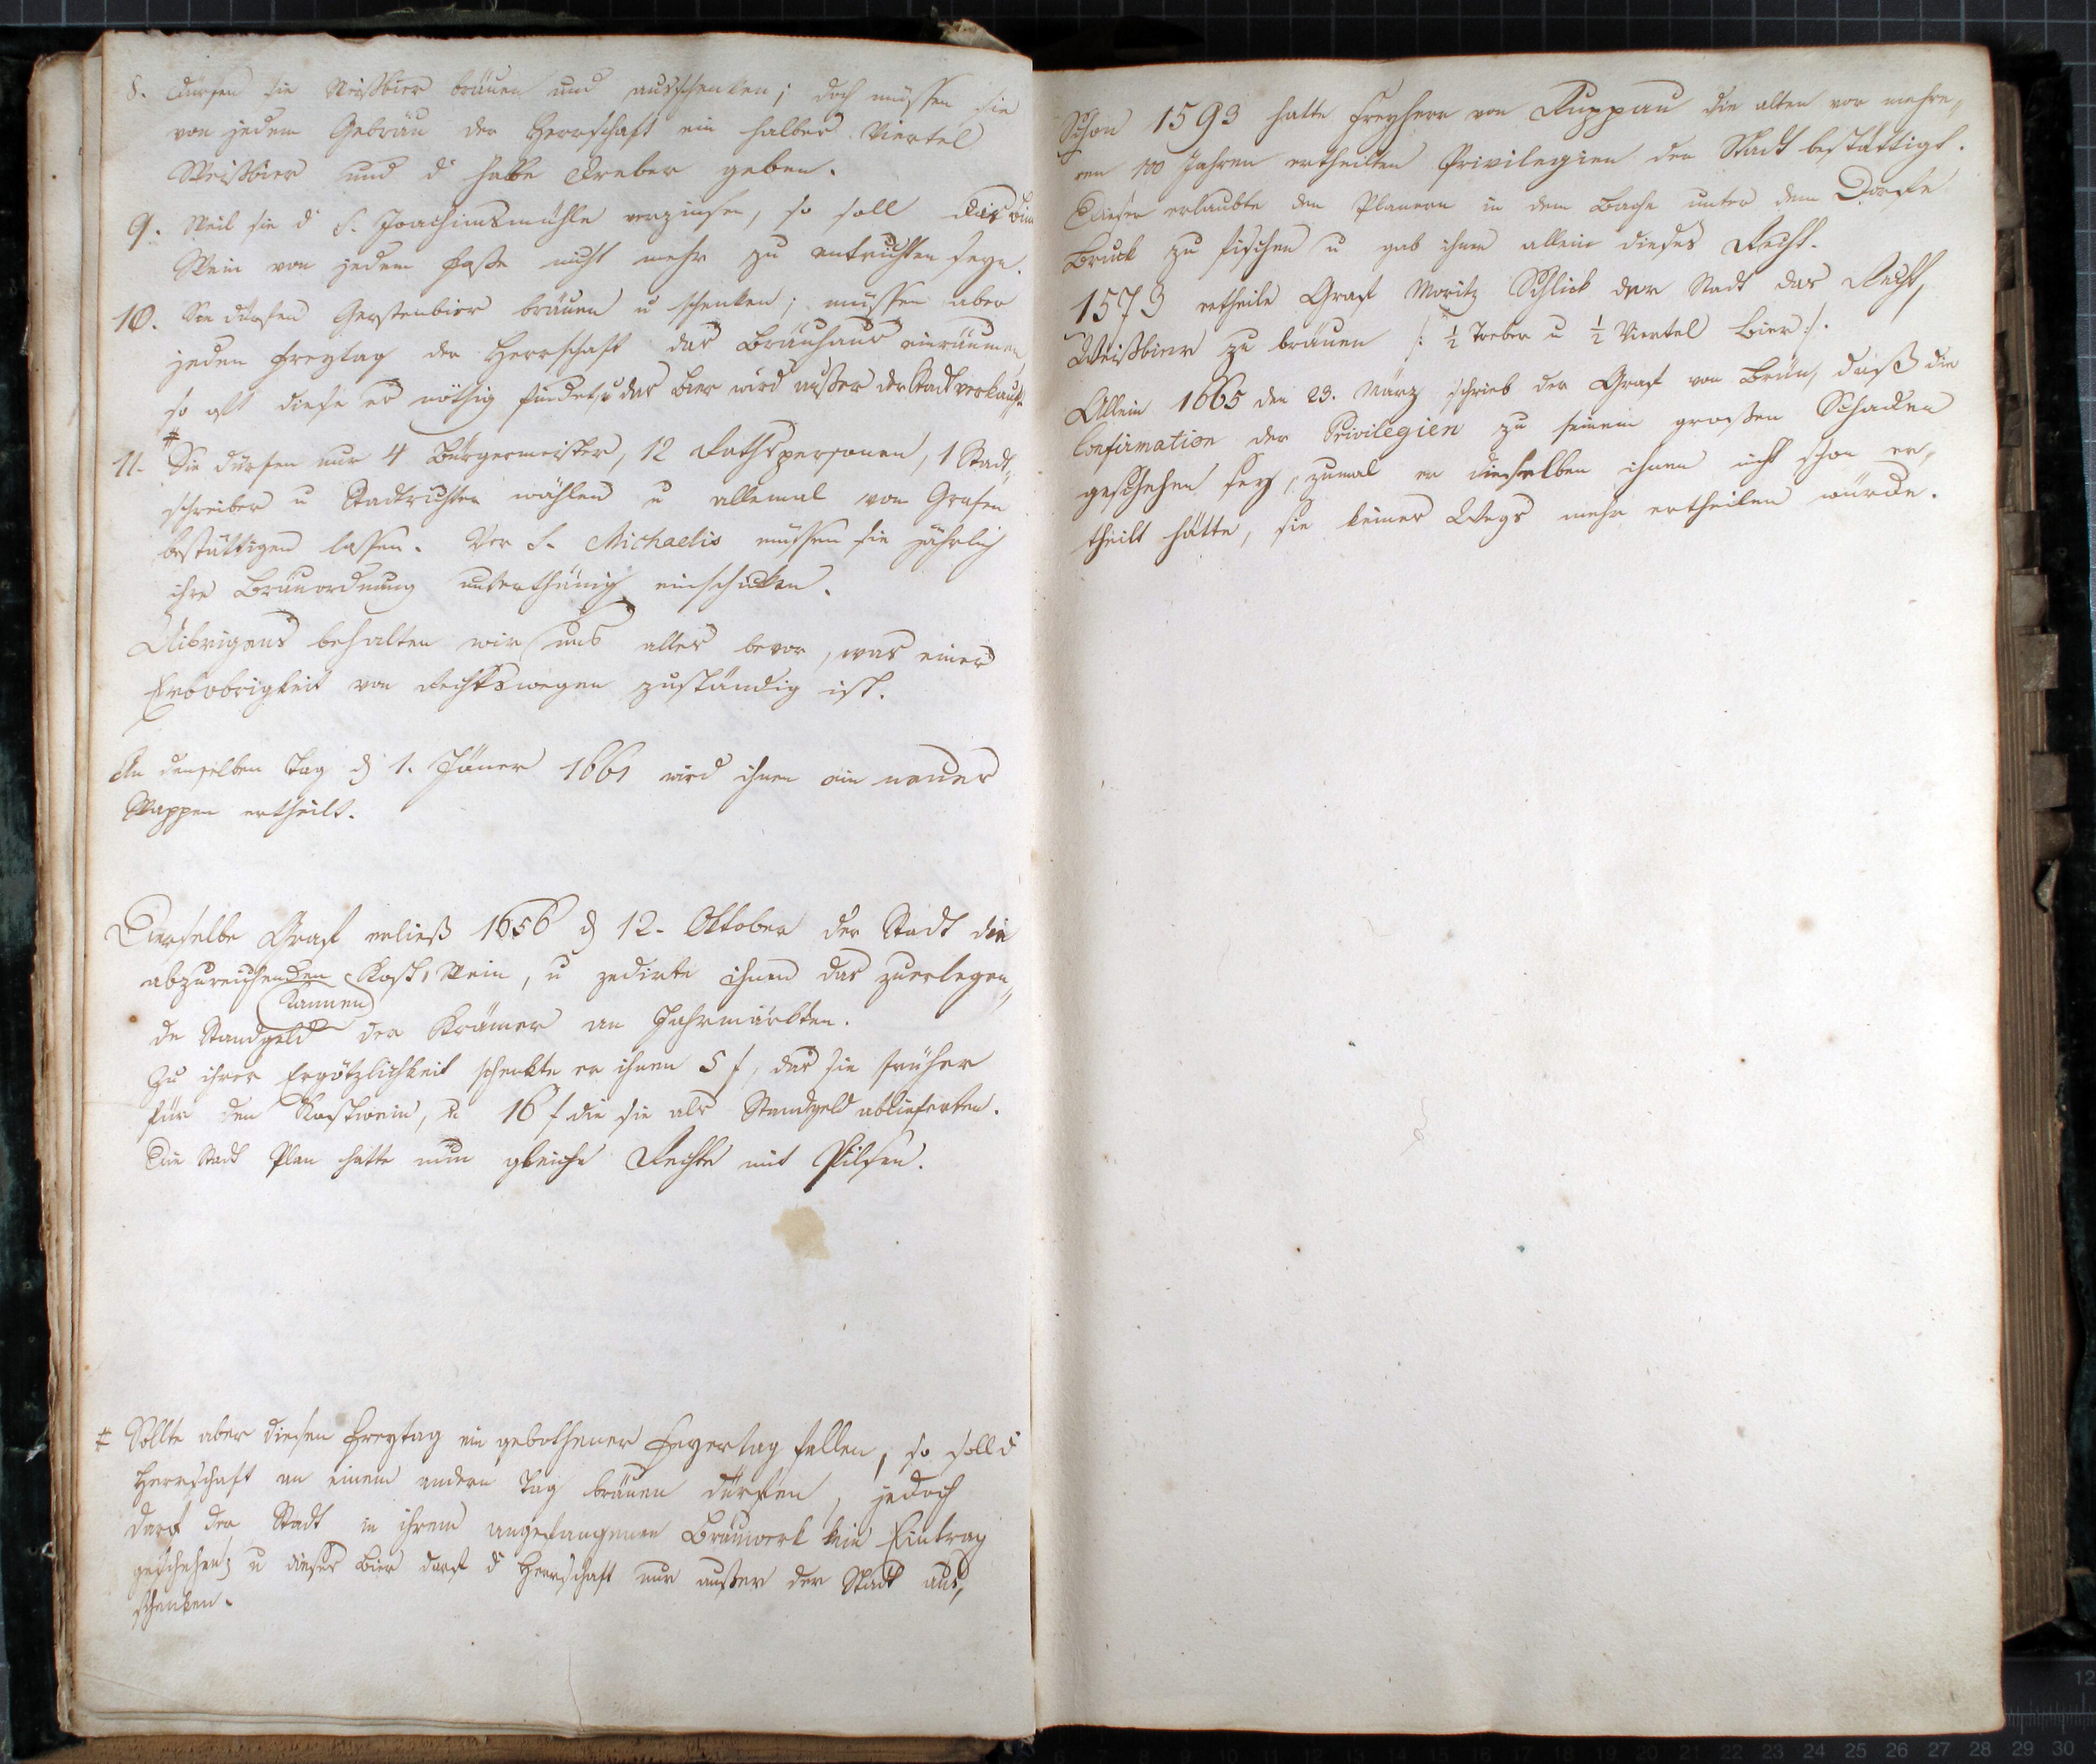 8. Dürfen sie Weißbier bräuen und ausschenken; doch müssen sie
von jedem Gebräu der Herrschaft ein halbes Viertel
Weißbier und d halbe Treber geben.
9. Weil sie d S. Joachimsmühle verzinsen, so soll
Wein von jedem Faße nicht mehr zu entrichten seyn.
10. Sie dürfen Gerstenbier bräuen u schenken; müssen aber
jeden Freytag der Herrschaft das Bräuhaus einräumen,
so oft diese es nöthig findet, u das Bier wird außer der Stadt verkauft.
#
11. Sie dürfen nur 4 Bürgermeister, 12 Rathspersonen, 1 Stadt„
schreiber u Stadtrichter wählen u allemal vom Grafen
bestättigen lassen. Vor S. Michaelis müssen sie jährlich
ihre Bräuordnung unterthänig einschicken.
Uibrigens behalten wir uns alles bevor, was einer
Erbobrigkeit von Rechtswegen zuständig ist.
An demselben Tag d 1. Jäner 1661 wird ihnen ein neues
Wappen ertheilt.
Derselbe Graf erließ 1656 d 12. Oktober der Stadt die
abzureichenden Kost Wein, u zedirte ihnen das zuerlegen„
Kannen
de Standgeld der Krämer an Jahrmärkten.
Zu ihrer Ergötzlichkeit schenkte er ihnen 5 f, das sie früher
für den Kostwein, u 16 f die sie als Standgeld ablieferten.
Die Stadt Plan hatte nun gleiche Rechte mit Pilsen.
# Sollte aber diesen Freytag ein gebothener Feyertag fallen, so soll d
Herrschaft an einem andern Tag bräuen dürfen, jedoch
darf der Stadt in ihrem angefangenen Bräuwerk kein Eintrag
geschehen; u dieses Bier darf d Herrschaft nur außer der Stadt aus„
schenken.
Schon 1593 hatte Freyherr von Ruppau die alten vor mehre„
ren 100 Jahren ertheilten Privilegien der Stadt bestättigt.
Dieser erlaubte den Planern in dem Bache unter dem Dorfe
Bruck zu fischen u gab ihnen allein dieses Recht.
1573 ertheilte Graf Moritz Schlick der Stadt das Recht,
Weißbier zu bräuen /: ½ Treber u ½ Viertel Bier :/.
Allein 1665 den 23. März schrieb der Graf von Brün, daß die
Confirmation der Privilegien zu seinem großen Schaden
geschehen sey, zumal er dieselben ihnen nicht schon er„
theilt hätte, sie keines Wegs mehr ertheilen würde.